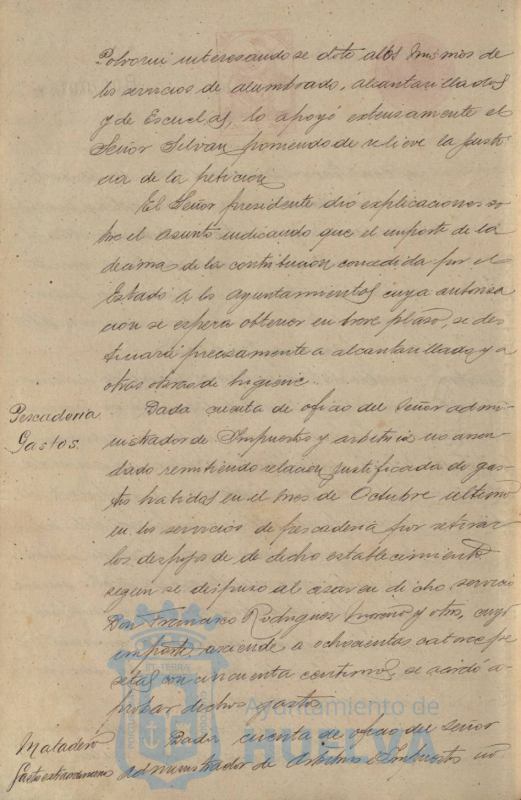 Polvorin interesando se dote a los mismos de
los servicios de alumbrado, alcantarillados
y de Escuelas, lo apoyó extensamente el
Señor Silvan poniendo de relieve la justi
cia de la peticion
El Señor presidente dió explicaciones so
bre el asunto indicando que el importe de la
decima de la contribucion concedida por el
Estado a los ayuntamientos cuya autoriza
cion se espera obtener en breve plazo, se des
tinará precisamente a alcantarillado y a
otras obras de higiene.
Pescaderia
Gastos.
Dada cuenta de oficio del Señor admi
nistrador de Impuestos y arbitrios no arren
dado remitiendo relacion justificada de gas
tos habidos en el mes de Octubre ultimo
en los servicios de pescaderia por retirar
los despojos de dicho establecimiento
segun se dispuso al cesar en dicho servicio
Don Francisco Rodriguez Moreno y otros, cuyo
importe asciende a ochocientas catorce pe
setas con cincuenta centimos, se acordó a
probar dichos gastos
Matadero
Gastos extraordinarios
Dada cuenta de oficio del Señor
administrador de Arbitrios e Impuestos no
Ayuntamiento de
HUELVA